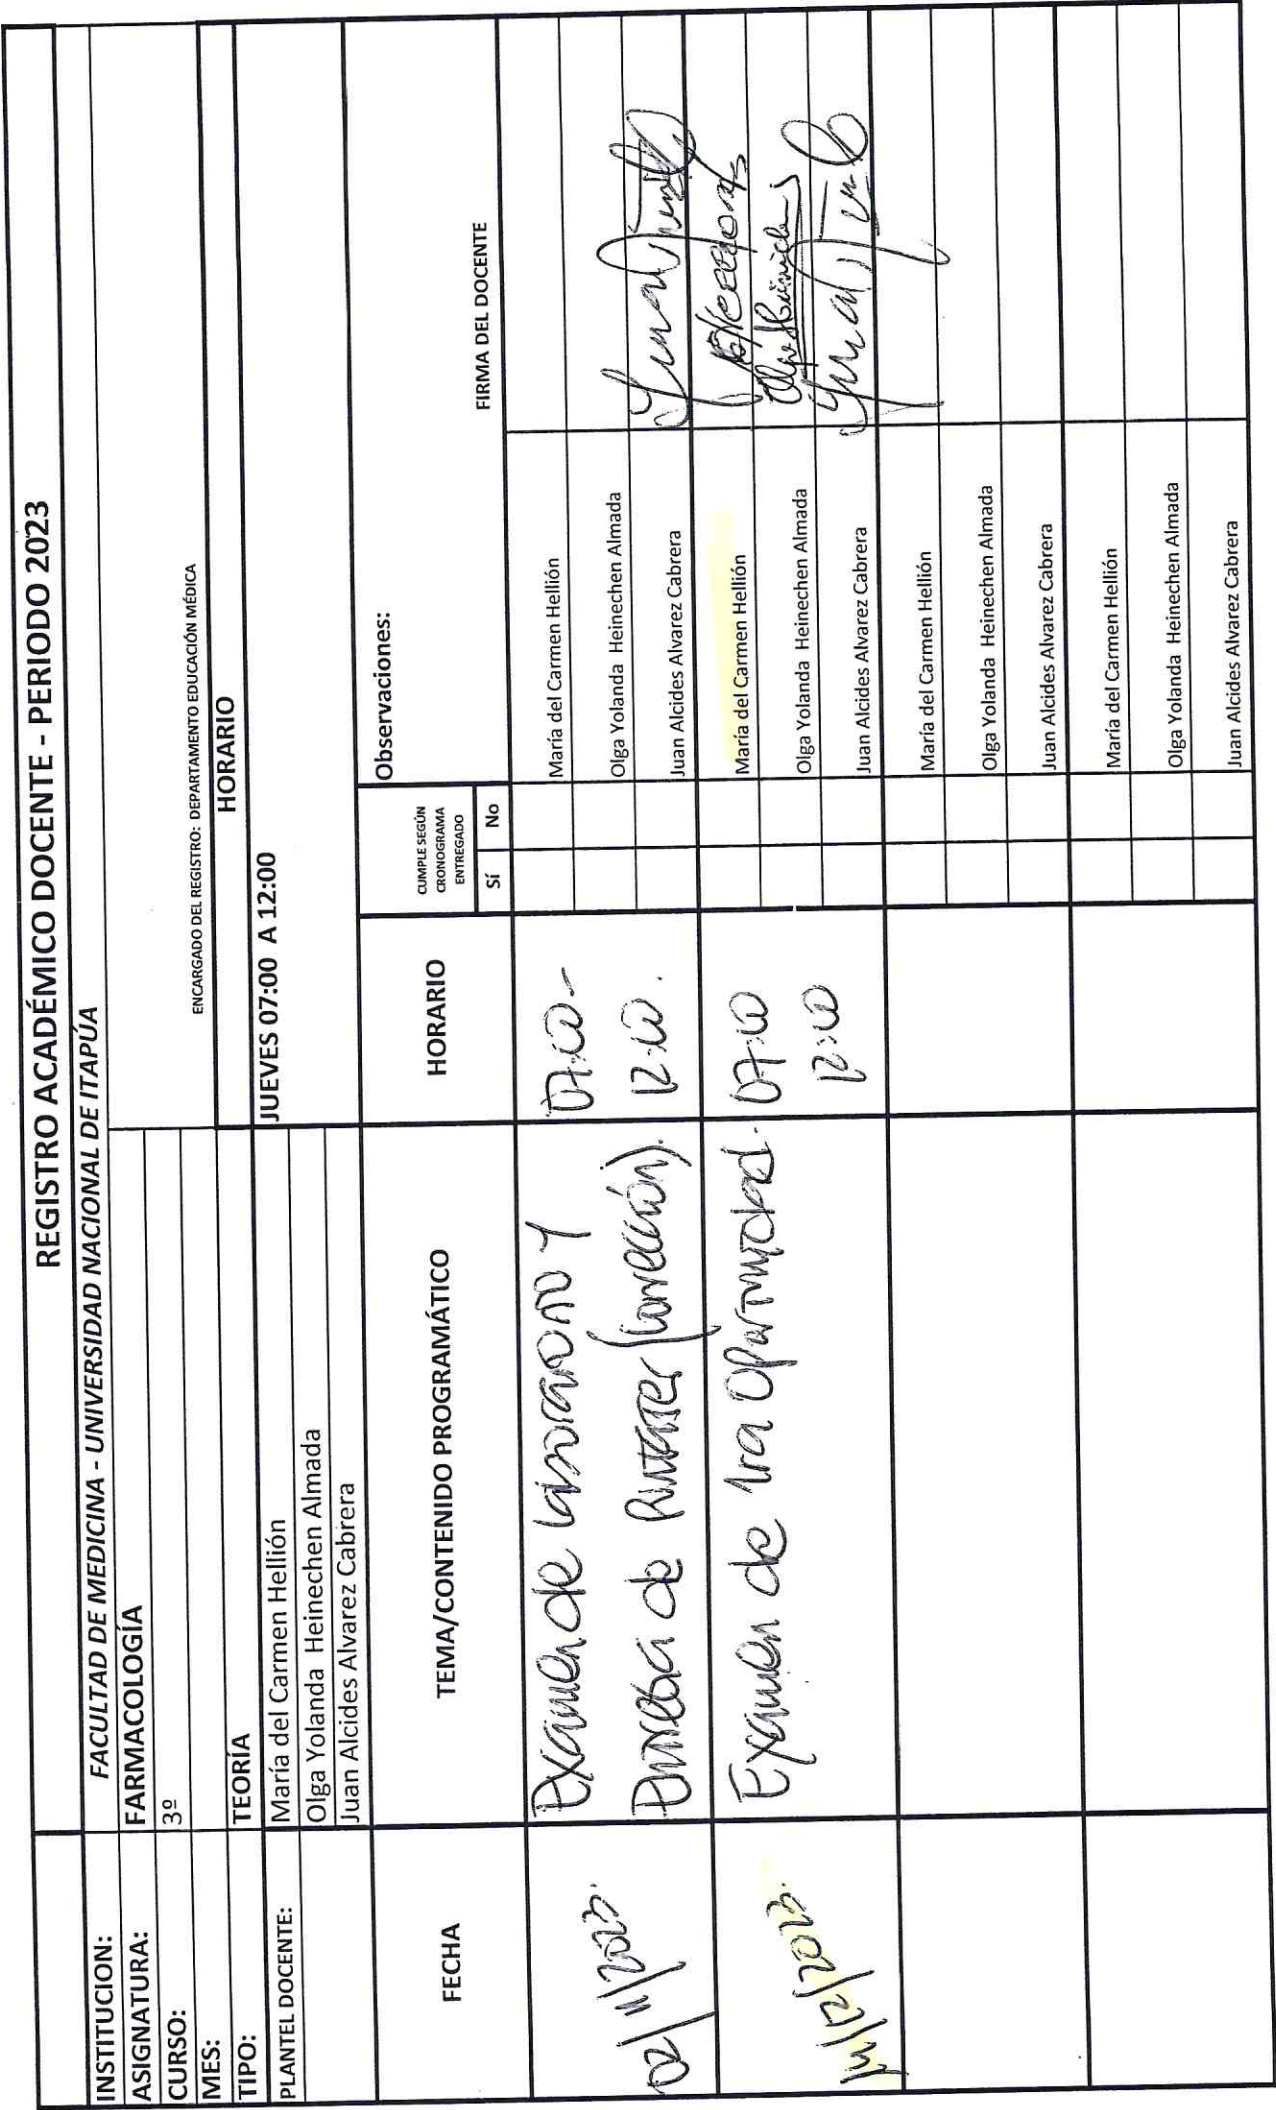 REGISTRO ACADÉMICO DOCENTE - PERIODO 2023
INSTITUCION: FACULTAD DE MEDICINA - UNIVERSIDAD NACIONAL DE ITAPÚA
ASIGNATURA: FARMACOLOGÍA
CURSO: 3º
ENCARGADO DEL REGISTRO: DEPARTAMENTO EDUCACIÓN MÉDICA
MES:
HORARIO
TIPO: TEORÍA
JUEVES 07:00 A 12:00
PLANTEL DOCENTE: María del Carmen Hellión
Olga Yolanda Heinechen Almada
Juan Alcides Alvarez Cabrera
FECHA
TEMA/CONTENIDO PROGRAMÁTICO
HORARIO
CUMPLE SEGÚN
CRONOGRAMA
ENTREGADO
Sí No
Observaciones:
FIRMA DEL DOCENTE
02/11/2023.
Examen de laboratorio y
Entrega de Puntajes (corrección).
07:00 -
12:00.
María del Carmen Hellión
Olga Yolanda Heinechen Almada
Juan Alcides Alvarez Cabrera
14/12/2023.
Examen de 1ra Oportunidad.
07:00
12:00
María del Carmen Hellión
Olga Yolanda Heinechen Almada
Juan Alcides Alvarez Cabrera
María del Carmen Hellión
Olga Yolanda Heinechen Almada
Juan Alcides Alvarez Cabrera
María del Carmen Hellión
Olga Yolanda Heinechen Almada
Juan Alcides Alvarez Cabrera